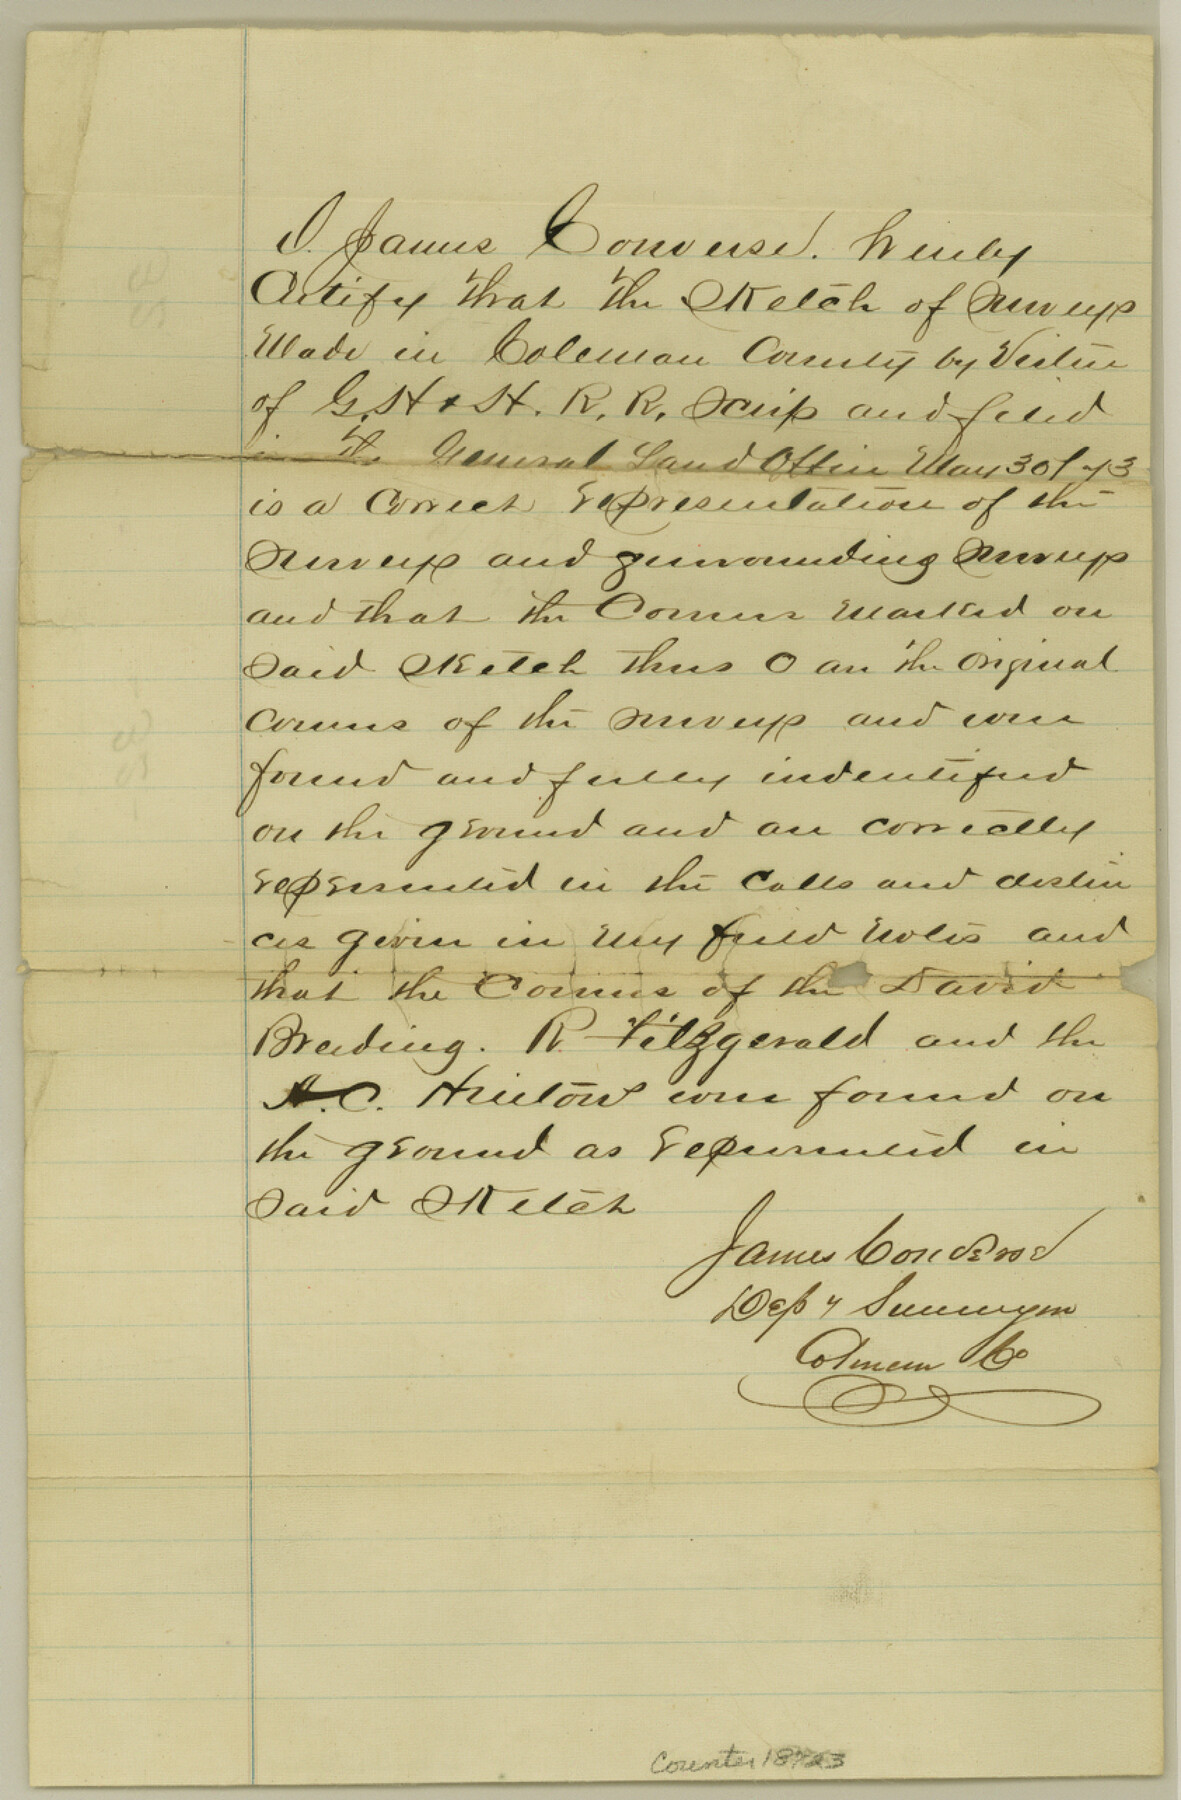 I. James Converse. hereby
Certify that the Sketch of surveys
Made in Coleman County by Virtue
of G. H & H. R. R. Scrip and filed
in the General Land Office May 30/73
is a Correct representation of the
surveys and surrounding surveys
and that the Corners marked on
said Sketch thus O are the original
corners of the surveys and were
found and fully indentified
on the ground and are correctly
represented in the calls and distin
ces given in my field notes and
that the Corners of the David
Breeding. R. Fitzgerald and the
A. C. were found on
the ground as represented in
said Sketch
James Converse
Depty Surveyor
Colman Co
Counter 18723